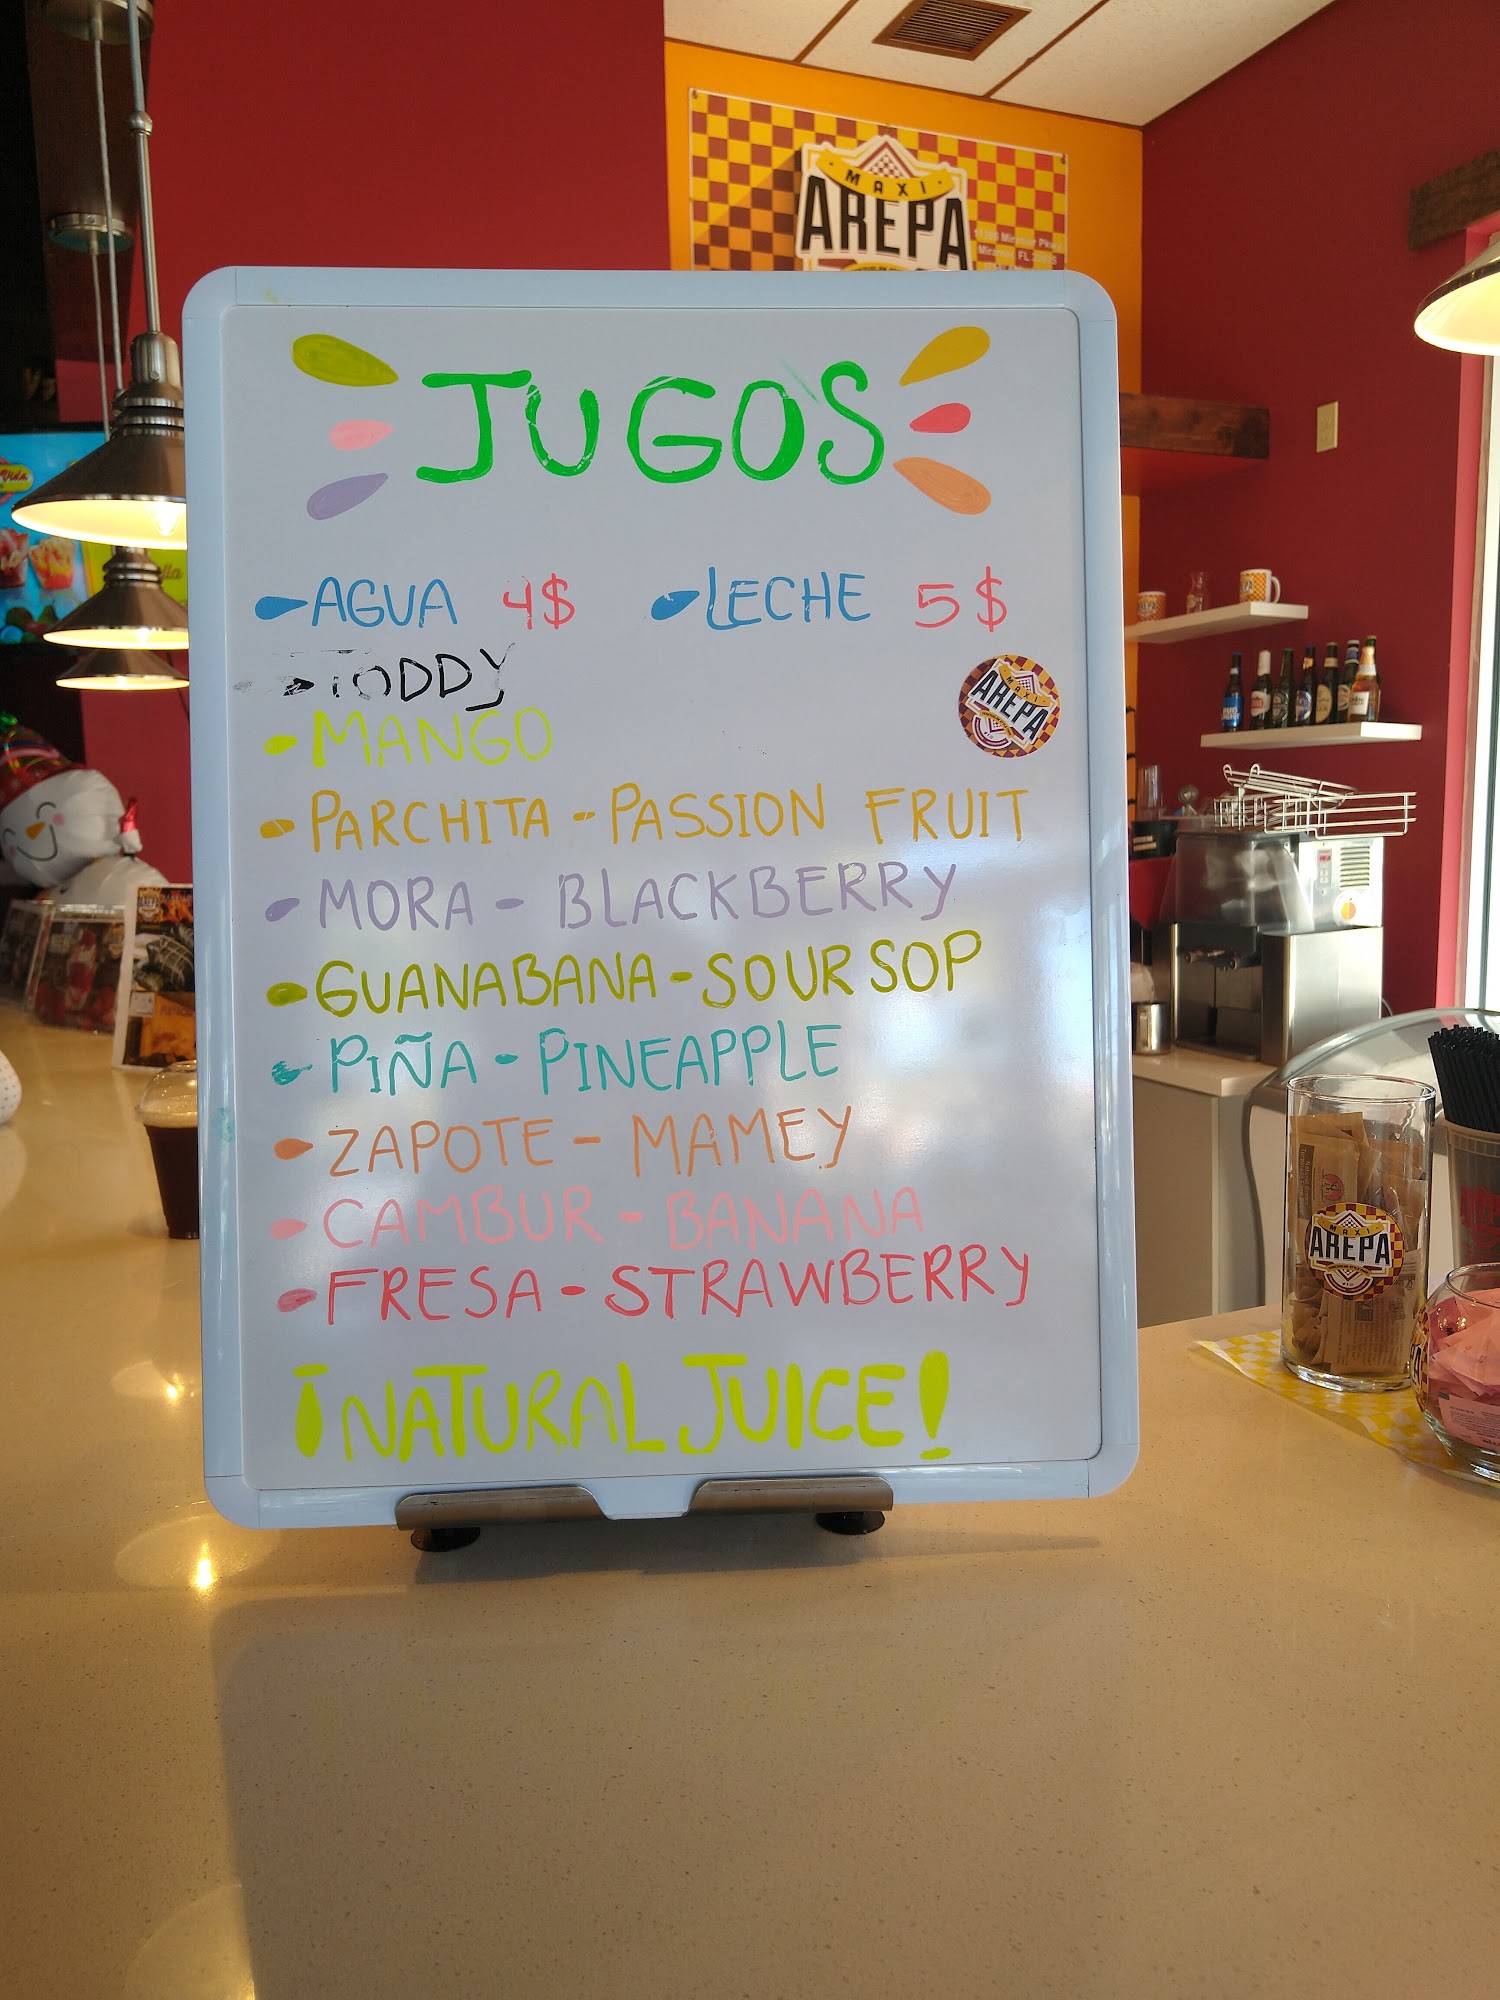 MAXI
AREPA
JUGO'S
AGUA 4$ LECHE 5$
TODDY
MAXI
AREPA
MANGO
PARCHITA - PASSION FRUIT
MORA - BLACKBERRY
GUANABANA - SOURSOP
PIÑA - PINEAPPLE
ZAPOTE - MAMEY
CAMBUR - BANANA
FRESA - STRAWBERRY
¡NATURAL JUICE!
MAXI
AREPA